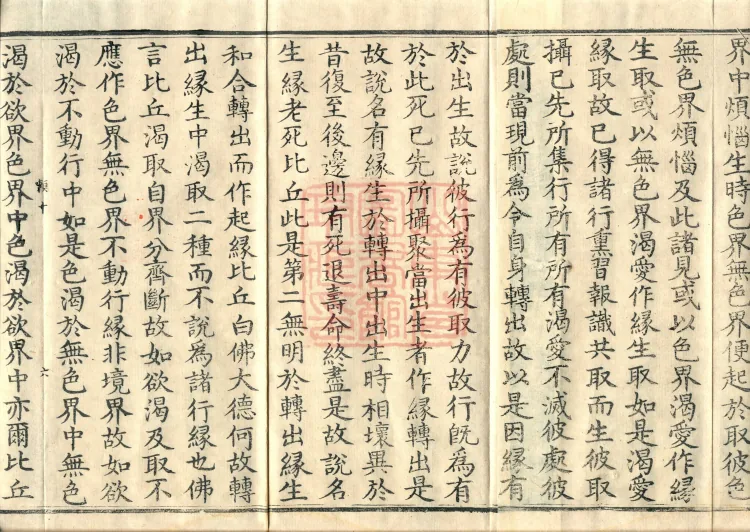 界中煩惱生時色界無色界便起於取彼色
無色界煩惱及此諸見或以色界渴愛作緣
生取或以無色界渴愛作緣生取如是渴愛
緣取故已得諸行熏習報識共取而生彼取
攝已先所集行所有所有渴愛不滅彼處彼
處則當現前為令自身轉出故以是因緣有
於出生故說彼行為有彼取力故行既為有
於此死已先所攝聚當出生者作緣轉出是
故說名有緣生於轉出中出生時相壞異於
昔復至後邊則有死退壽命終盡是故說名
生緣老死比丘此是第二無明於轉出緣生
和合轉出而作起緣比丘白佛大德何故轉
出緣生中渴取二種而不說為諸行緣也佛
言比丘渴取自界分齊斷故如欲渴及取不
應作色界無色界不動行緣非境界故如欲
渴於不動行中如是色渴於無色界中無色
渴於欲界色界中色渴於欲界中亦爾比丘
六